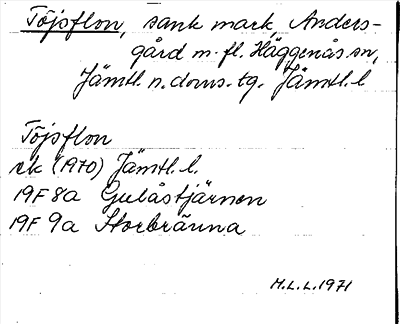 Töjsflon, sank mark, Anders-
gård m. fl. Häggenås sn,
Jämtl. n. doms. tg. Jämtl. l
Töjsflon
rk (1970) Jämtl. l.
19F 8a Gulåstjärnen
19F 9a Storbränna
M.L.L. 1971